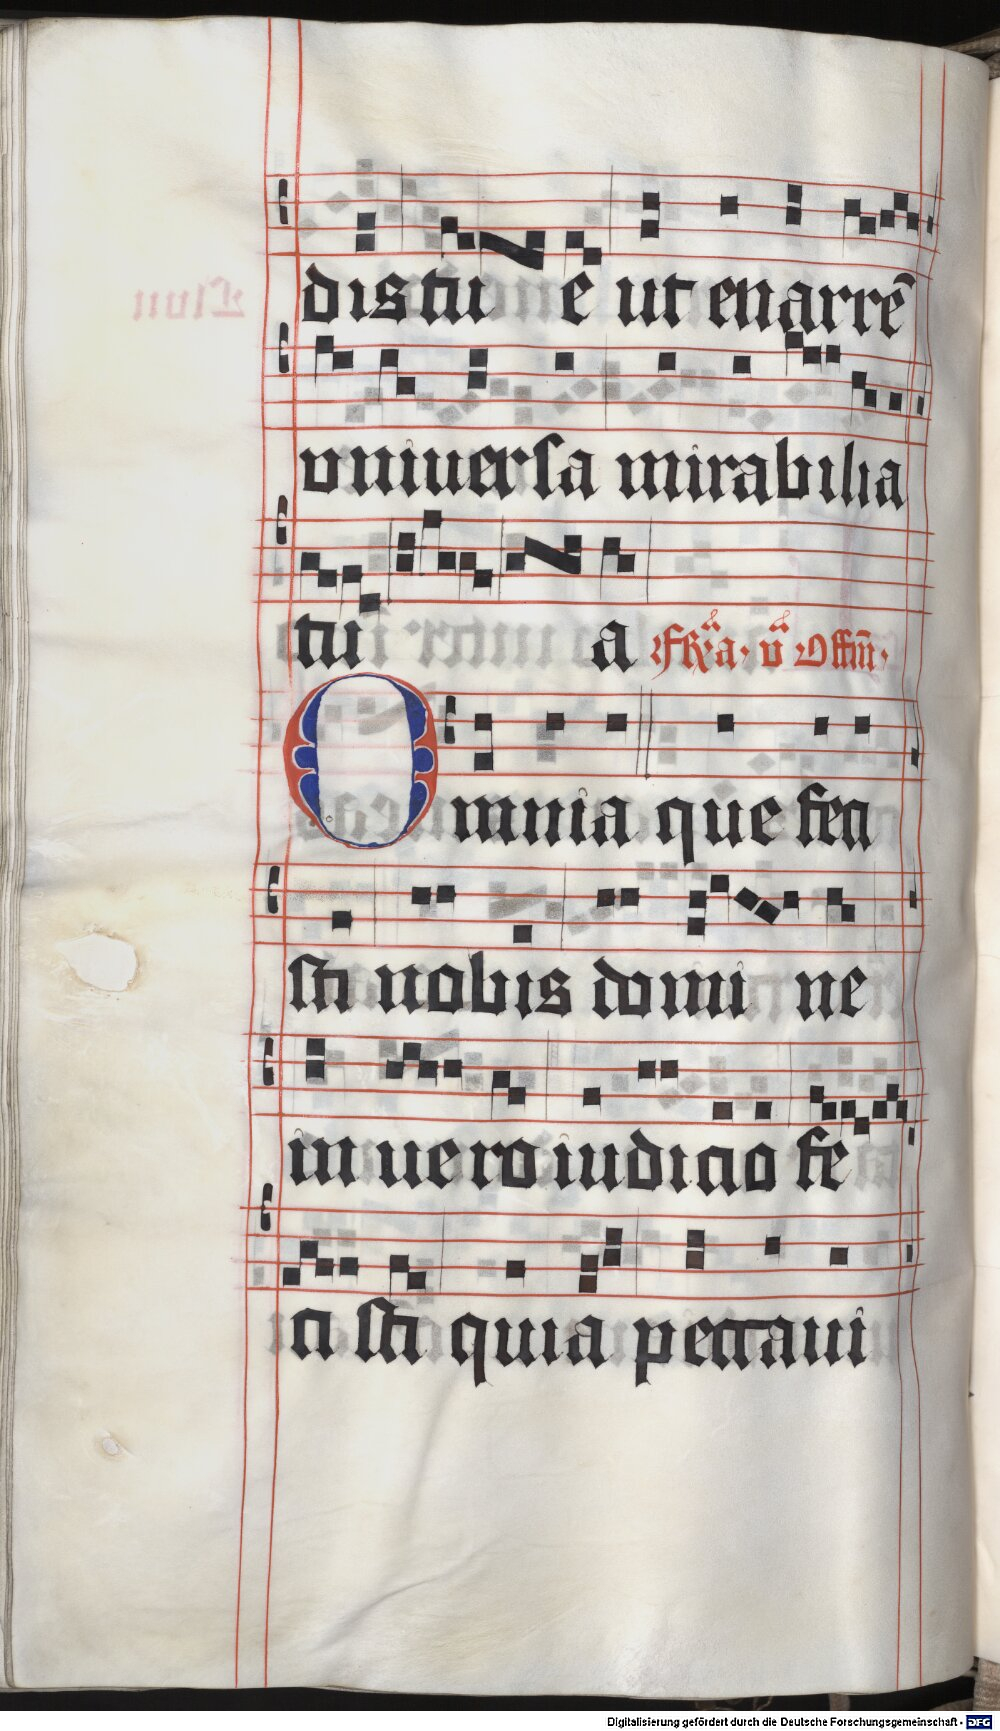 distu e ut enarrē
vniuersa mirabilia
tui a Fr̄a v̄ Offm̄
Omnia que feci
sti nobis domi ne
in uero iudicio fe
ci sti quia peccaui
Digitalisierung gefördert durch die Deutsche Forschungsgemeinschaft - DFG